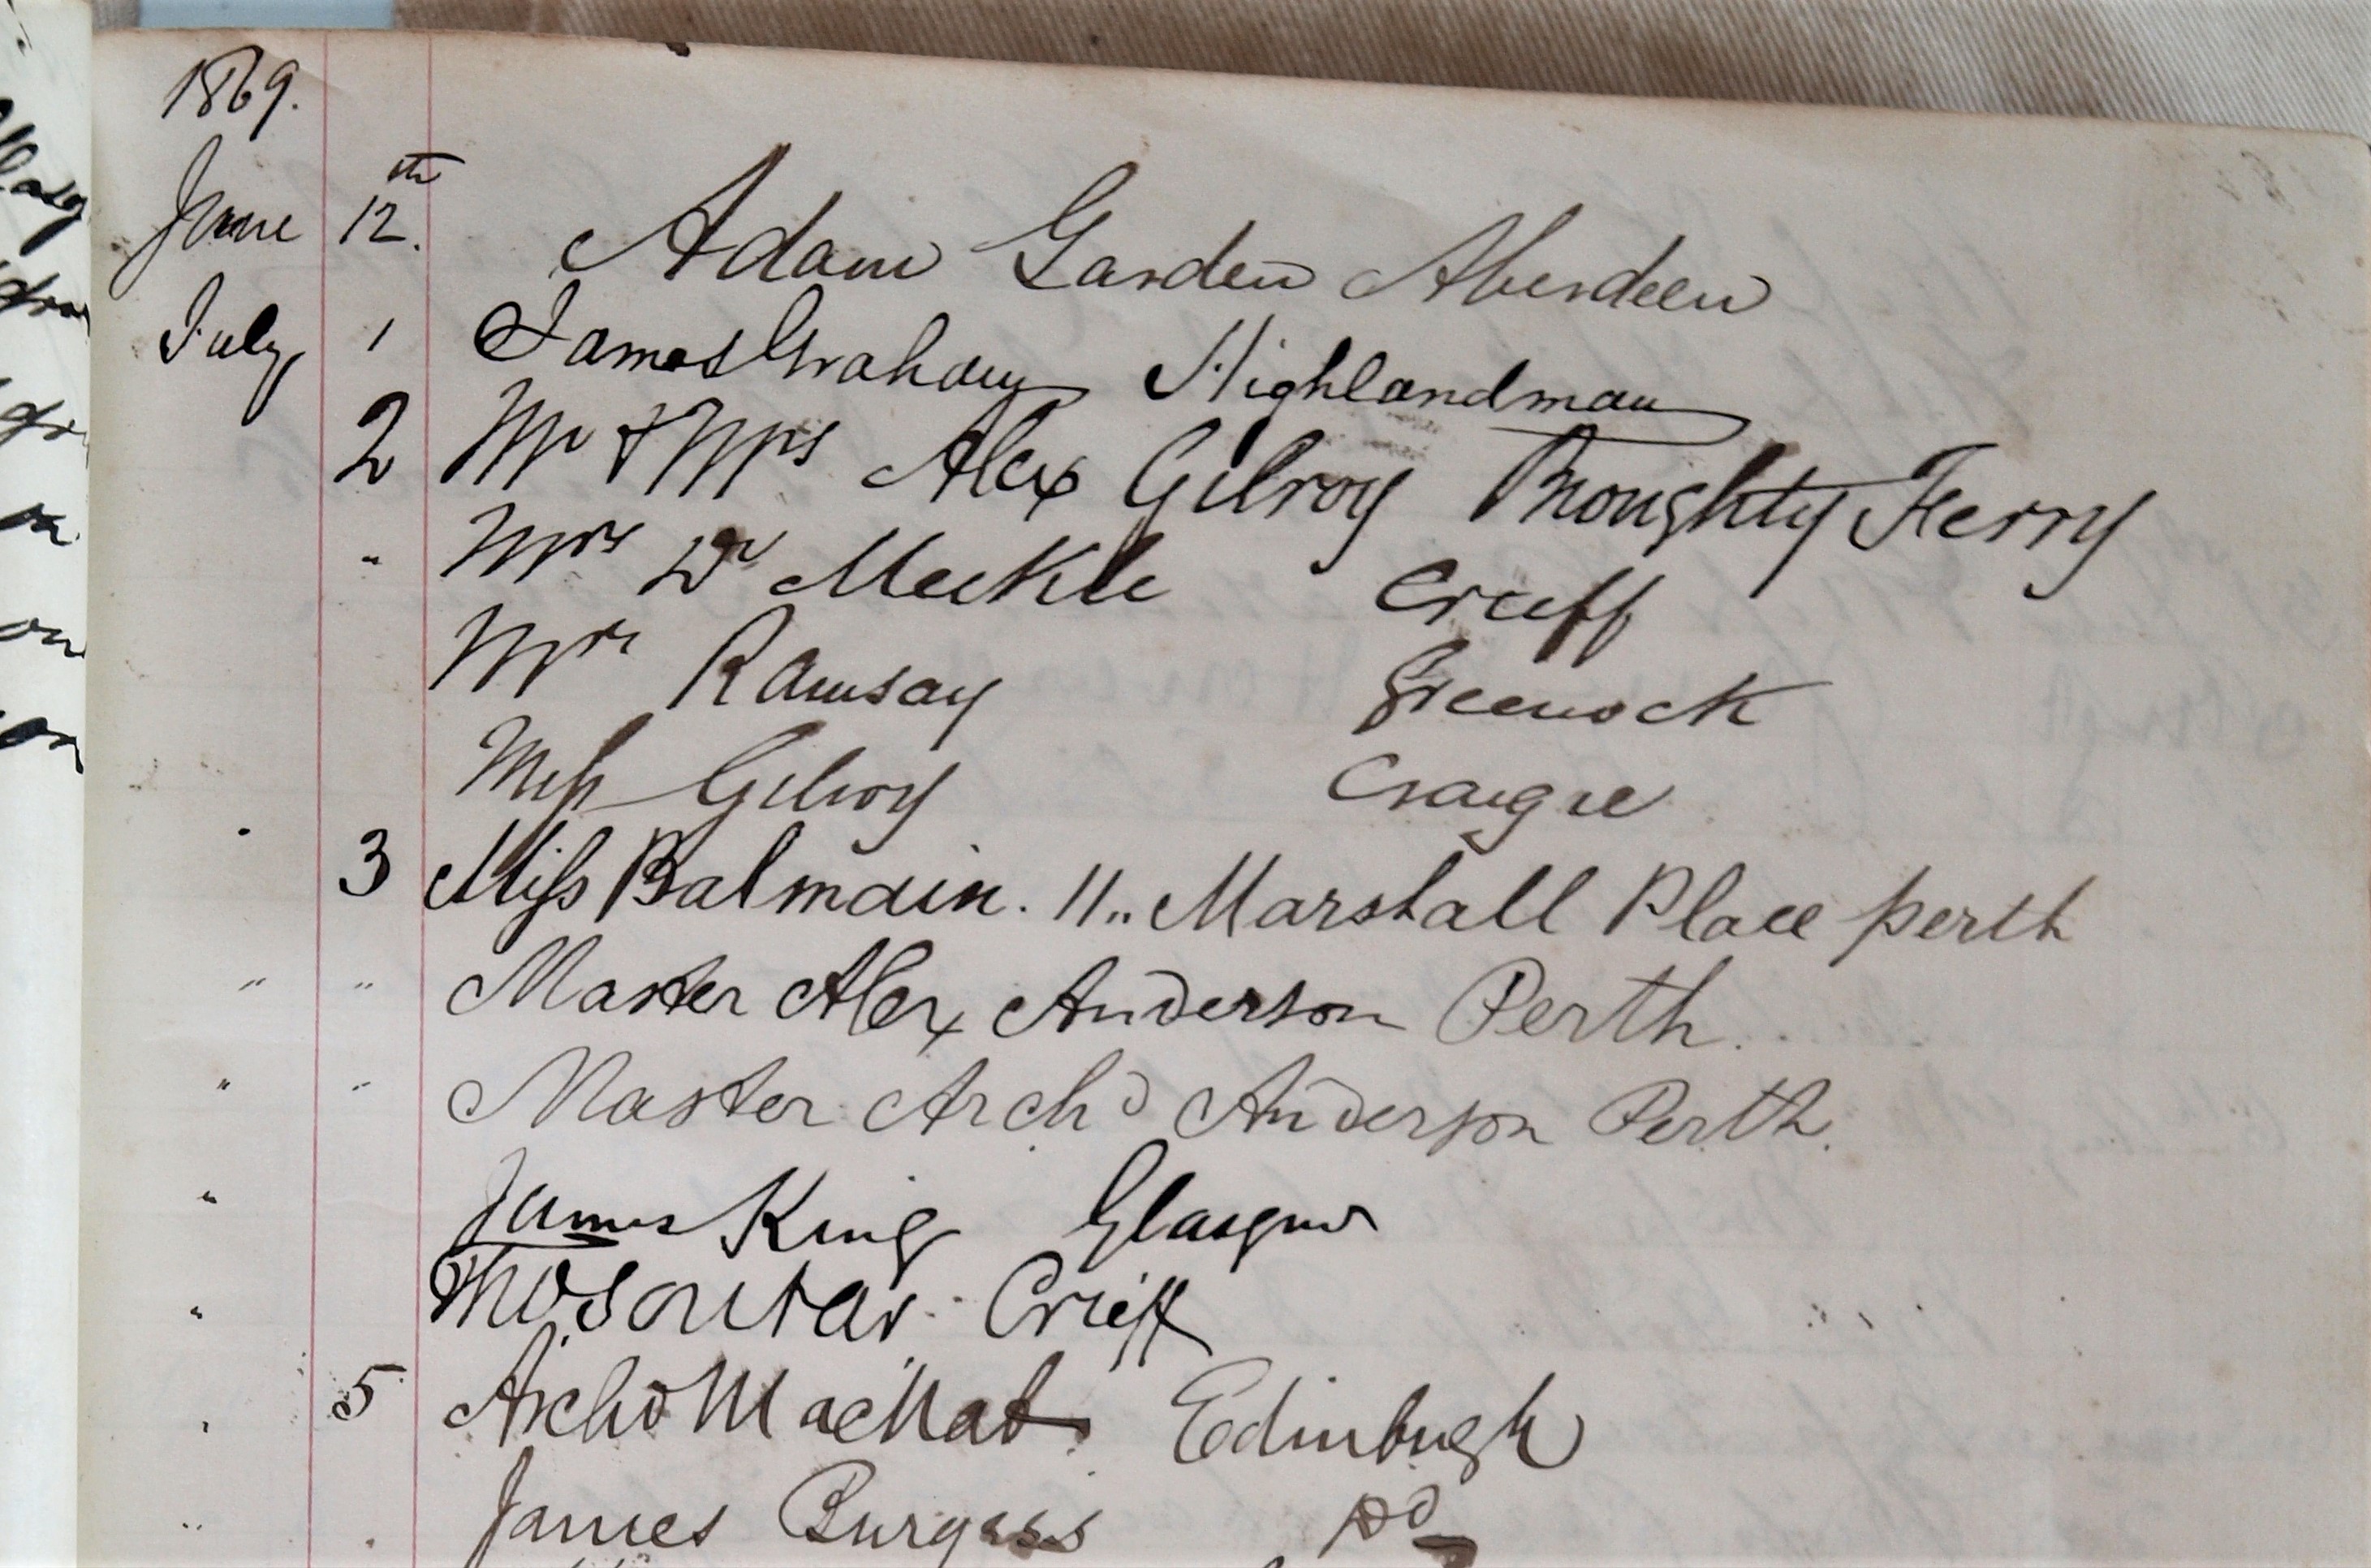 1869.
June 12th. Adam Garden Aberdeen
July 1 James Graham Highlandman
2 Mr & Mrs Alex Gilroy Broughty Ferry
" Mrs Dr Meikle Crieff
Mrs Ramsay Greenock
Miss Gilroy Craigie
3 Miss Balmain. 11.. Marshall Place perth
" " Master Alex Anderson Perth.
" " Master Archd Anderson Perth.
" James King Glasgow
" Thos Soutar Crieff
" 5 Archd MacNab Edinburgh
" James Burgess Do